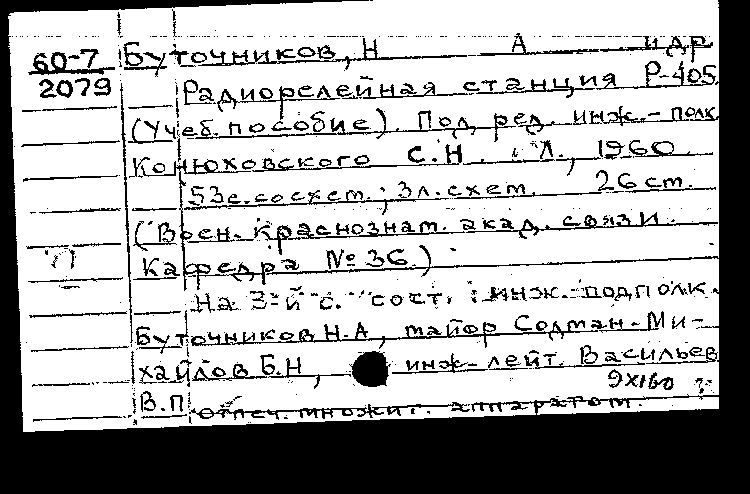 60-7 Буточников, Н А и др.
2079 Радиорелейная станция Р-405
(Учеб. пособие). Под ред. инж.-полк.
Конюховского С.Н. Л., 1960.
53 с. со схем.; 3 л. схем. 26 см.
(Воен. краснознам. акад. связи.
Кафедра № 36.)
На 3-й с. сост.: инж.-подполк.
Буточников Н.А, майор Содман-Ми-
хайлов Б.Н, инж-лейт. Васильев
9X160
В.П Отпеч. множит. аппаратом.